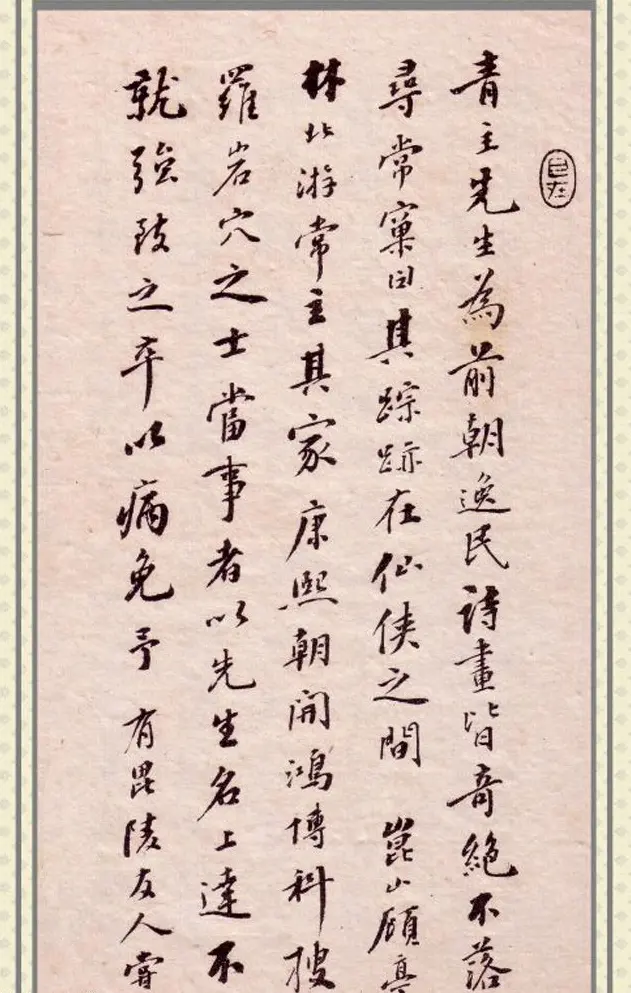 自在
青主先生為前朝逸民詩畫皆奇絶不落
尋常窠臼其踪跡在仙俠之間 崑山顧亭
林北游常主其家康熙朝開鴻博科搜
羅岩穴之士當事者以先生名上達不
就強致之卒以病免予 有毘陵友人嘗